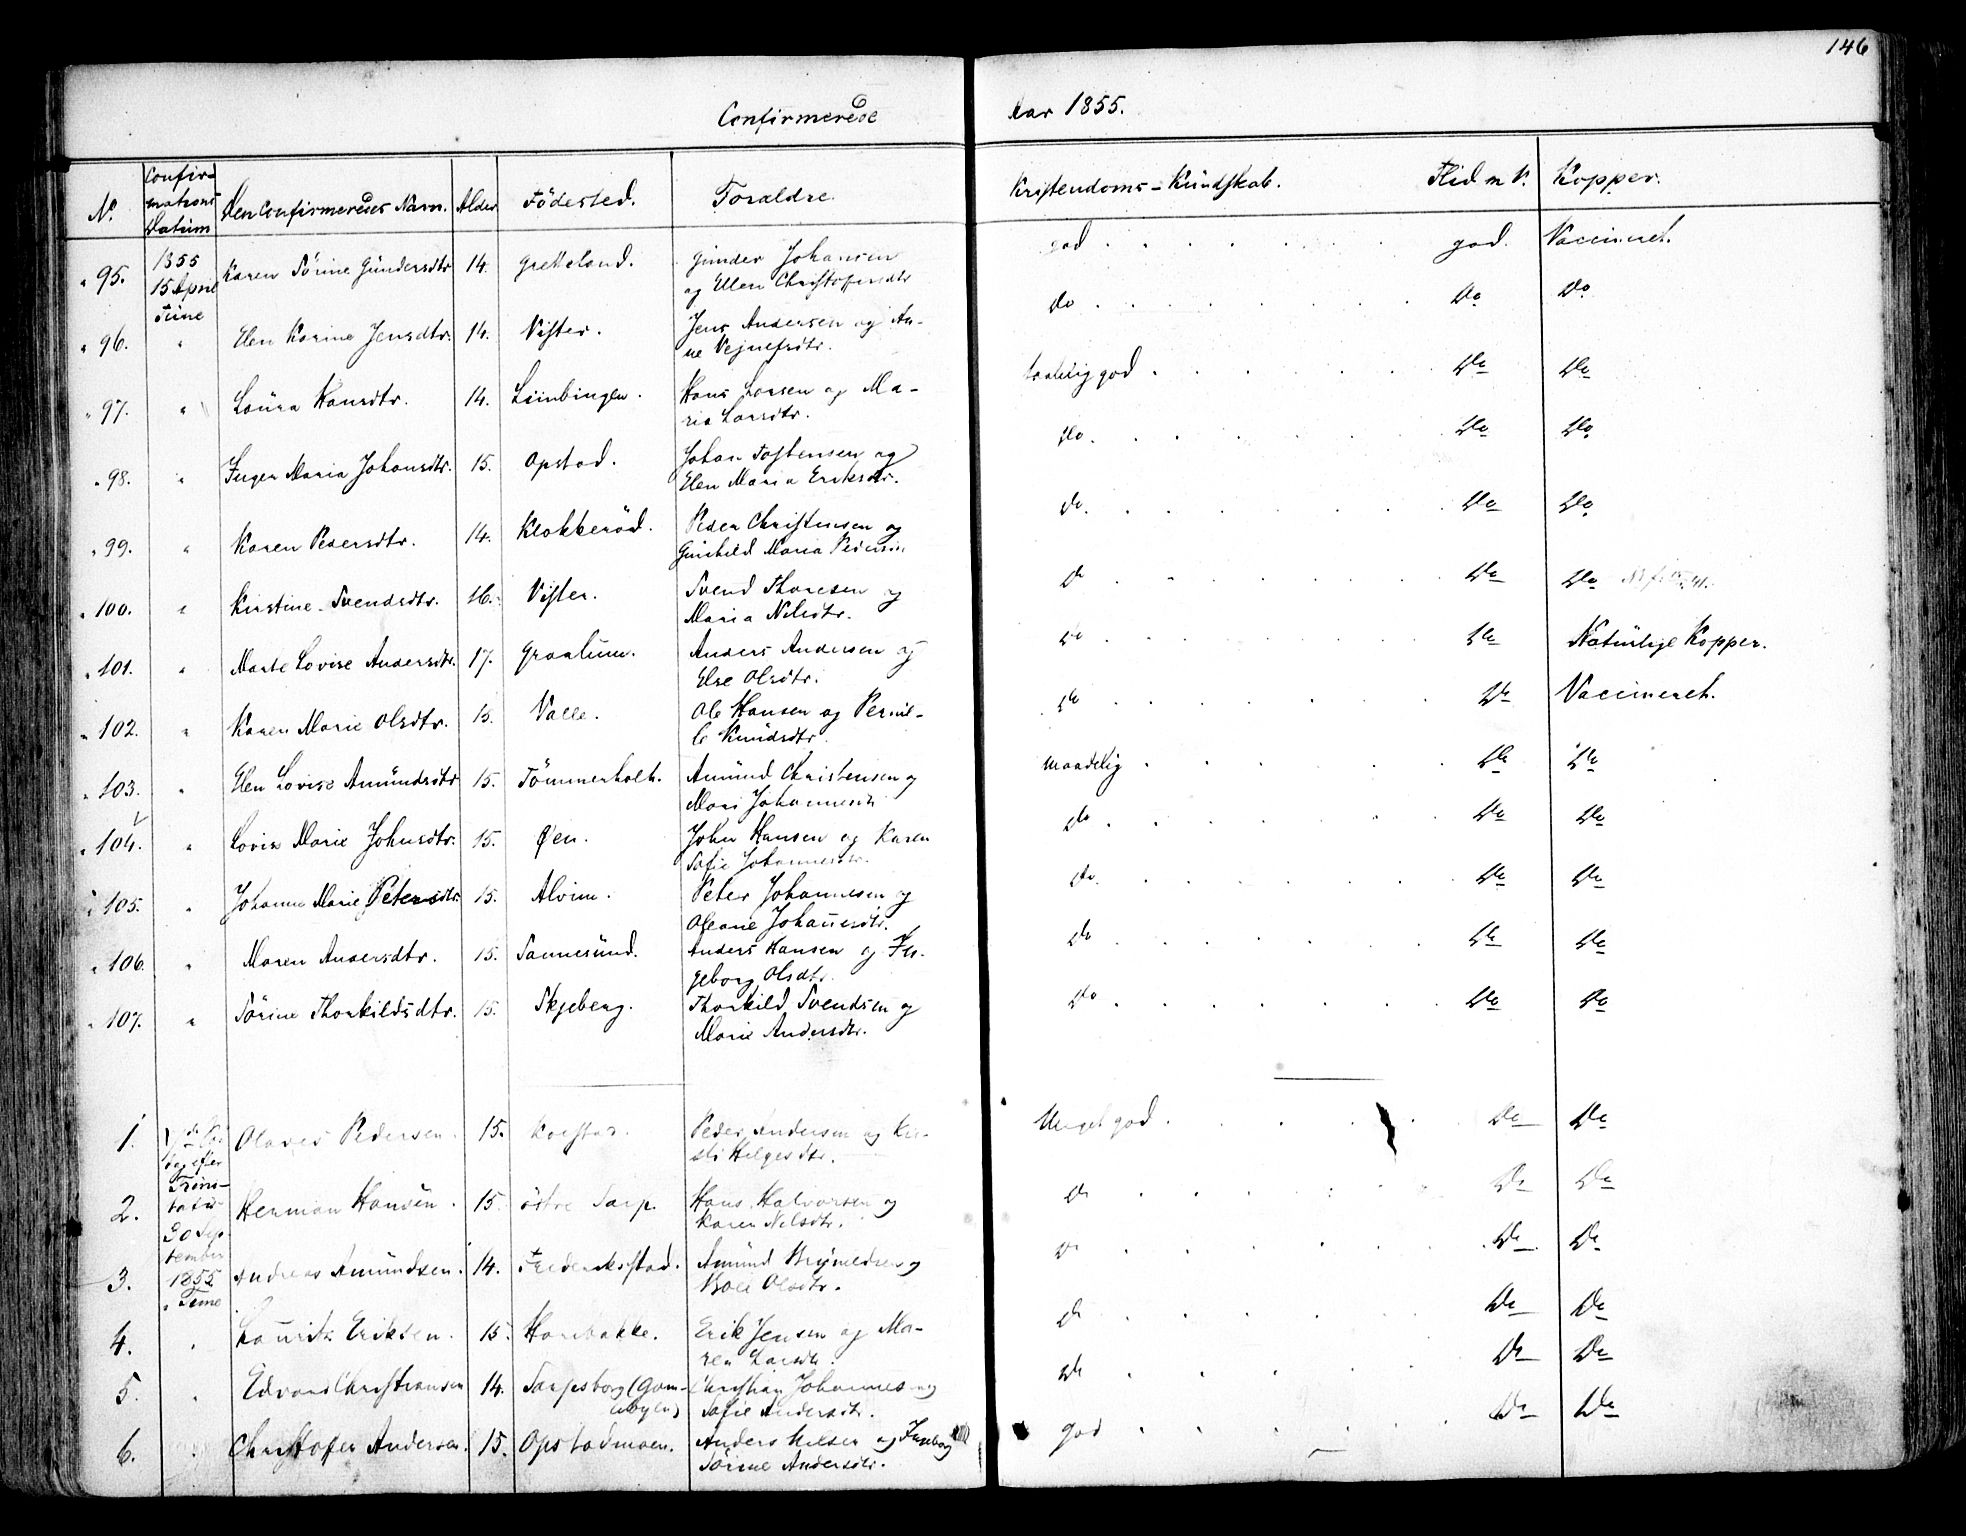 146
Confirmerede Aar 1855.
No. Confir-mations Datum Den Confirmeredes Navn. Alder Födested. Foraldre. Kristendoms-Kundskab. Flid m V. Kopper.
95. 1855 15 April Tune Karen Sörine Gundersdtr. 14. Grelleland. Gunder Johansen god god. Vaccineret.
og Ellen Christofersdtr
96. " Elen Karine Jensdtr. 14. Vister. Jens Andersen og An- Do Do Do
ne Vejnesdtr.
97. " Laura Hansdtr. 14. Hans Larsen og Ma- taalelig god Do Do
ria Larsdtr.
98. " Inger Maria Johansdtr. 15. Opstad. Johan Tostensen og Do. Do Do
Elen Maria Eriksdtr.
99. " Karen Pedersdtr. 14. Klokkeröd. Peder Christensen og Do. Do Do
Gunhild Maria
100. " Kirstine Svendsdtr. 16. Vister. Svend Thoresen og Do Do Do
Maria Nilsdtr.
101. " Marte Lovise Andersdtr. 17. Graalum. Anders Andersen og Do Do Naturlige Kopper.
Else Olsdtr.
102. " Karen Marie Olsdtr. 15. Valle. Ole Hansen og Pernil- Do Do Vaccineret.
le Knudsdtr.
103. " Elen Lovise Amundsdtr 15. Tömmerholt. Amund Christensen og maadelig Do Do
Mari Johannesdtr
104. " Lovise Marie Johnsdtr. 15. Øen. John Hansen og Karen Do Do Do
Sofie Johannesdtr.
105. " Johanne Marie Petersdtr. 15. Alvim. Peter Johannesen og Do. Do Do
Oleane Johansdtr.
106. " Maren Andersdtr. 15. Sannesund. Anders Hansen og In- Do Do Do
geborg Olsdtr.
107. " Sörine Thorkildsdtr. 15. Skjeberg. Thorkild Svendsen og Do Do Do
Marie Andersdtr.
1. Olaves Pedersen. 15. Peder Andersen og Kir- Meget god Do Do
efter sti Helgesdtr.
Trini-
2. tatis Herman Hansen. 15. östre Sarp. Hans Halvorsen og Do Do Do
30 Sep- Karen Nilsdtr.
tember
3. 1855 Andreas Amundsen. 14. Frederikstad. Amund og Do Do Do
" Tune Olsdtr.
4. " Eriksen. 15. Hanebakke. Erik Jensen og Ma- Do Do Do
ren Larsdtr.
5. " Edvard Christiansen 14. Sarpsborg (Gam- Christian Johannes og Do Do Do
lebyen) Sofie Andersdtr.
6. " Christofer Andersen. 15. Opstadmoen. Anders Nilsen og Ingeborg god Do Do
Sörine Andersdtr.